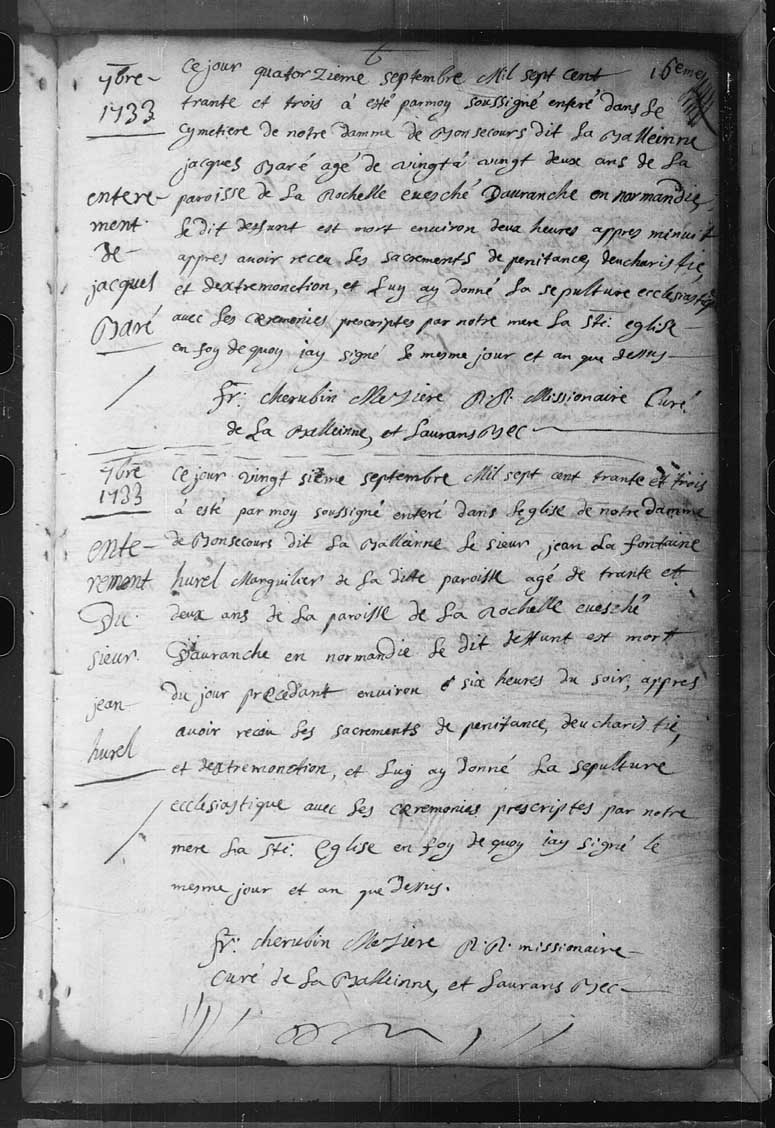 16eme
7bre
1733
entere-
ment
de
jacques
Baré
ce jour quatorzieme septembre Mil sept cent
trante et trois á esté par moy soussigné enteré dans le
cymetiere de notre damme de Bonsecours dit La Balleinne
jacques Baré agé de vingt á vingt deux ans de La
paroisse de La Rochelle evesché Dauranche en normandie,
le dit deffunt est mort environ deux heures appres minuit
appres avoir receu les sacrements de penitance, deucharistie,
et dextremonction, et Luy ay donné La sepulture ecclesiastique
avec les cæremonies prescriptes par notre mere La Ste: eglise
en foy de quoy jay signé le mesme jour et an que dessus
fr: cherubin Meziere R.R. Missionaire Curé
de La Balleinne, et Laurans Bec
7bre
1733
ente-
rement
Du
sieur
jean
hurel
ce jour vingt sieme septembre Mil sept cent trante et trois
á esté par moy soussigné enteré dans leglise de notre damme
de Bonsecours dit La Balleinne le sieur jean La fontaine
hurel Marguilier de La dite paroisse agé de trante et
deux ans de La paroisse de La Rochelle evesché
Dauranche en normandie le dit deffunt est mort
du jour precedant environ six heures du soir, appres
avoir receu les sacrements de penitance, deucharistie,
et dextremonction, et Luy ay donné La sepulture
ecclesiastique avec les cæremonies prescriptes par notre
mere La Ste: Eglise en foy de quoy jay signé le
mesme jour et an que dessus.
fr: cherubin Meziere R.R. missionaire
Curé de La Balleinne, et Laurans Bec